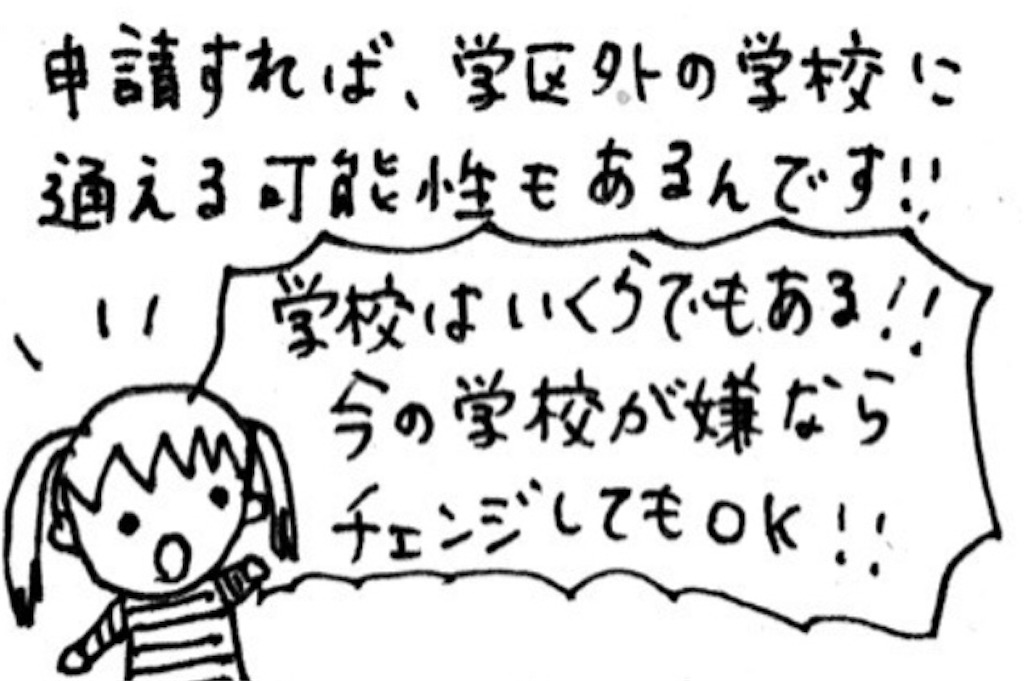 申請すれば、学区外の学校に
通える可能性もあるんです!!
学校はいくらでもある!!
今の学校が嫌なら
チェンジしてもOK!!